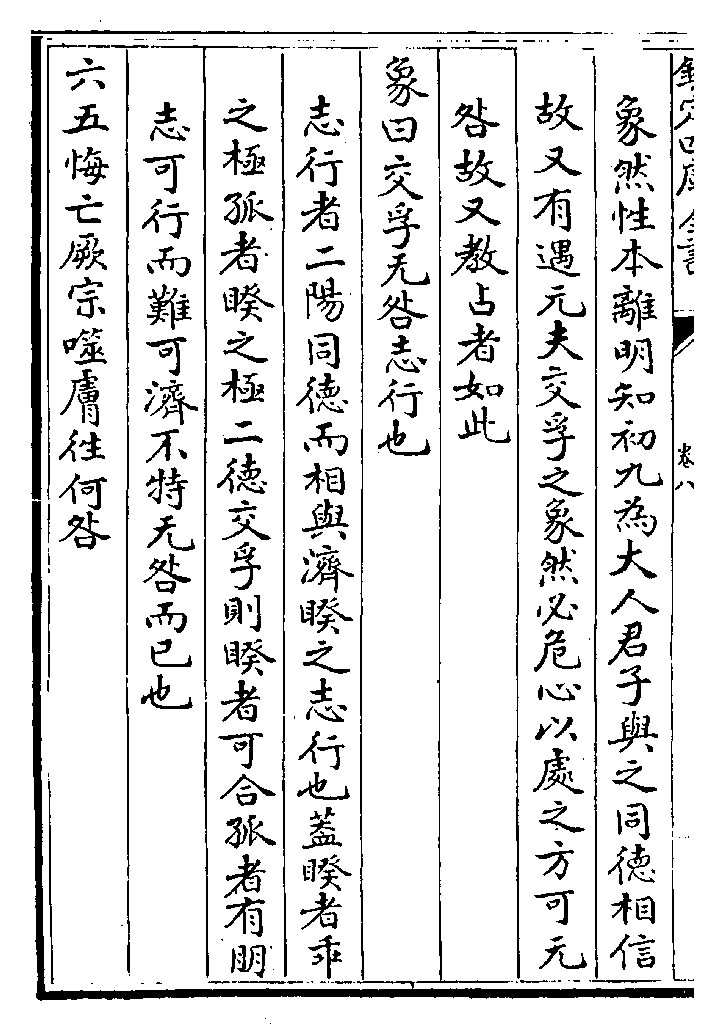 欽定四庫全書
卷八
象然性本離明知初九為大人君子與之同德相信
故又有遇元夫交孚之象然必危心以處之方可无
咎故又教占者如此
象曰交孚无咎志行也
志行者二陽同德而相與濟睽之志行也蓋睽者乖
之極孤者睽之極二德交孚則睽者可合孤者有朋
志可行而難可濟不特无咎而已也
六五悔亡厥宗噬膚往何咎